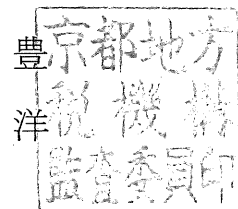 豊
洋
京都地方
税機構
監査委員印